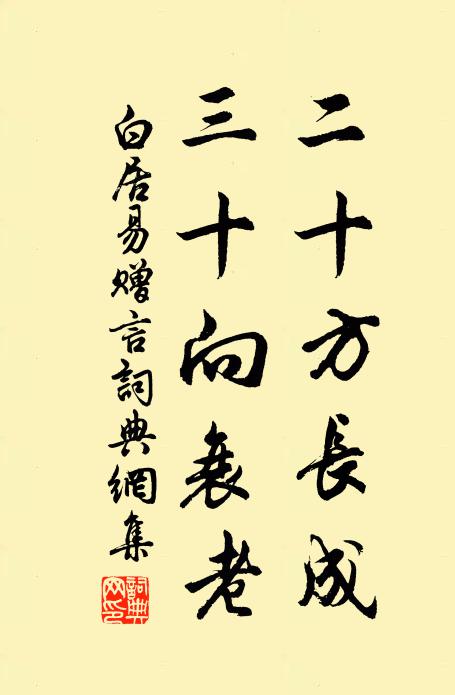 二十方長成
三十向衰老
白居易贈言詞典網集
詞典網印